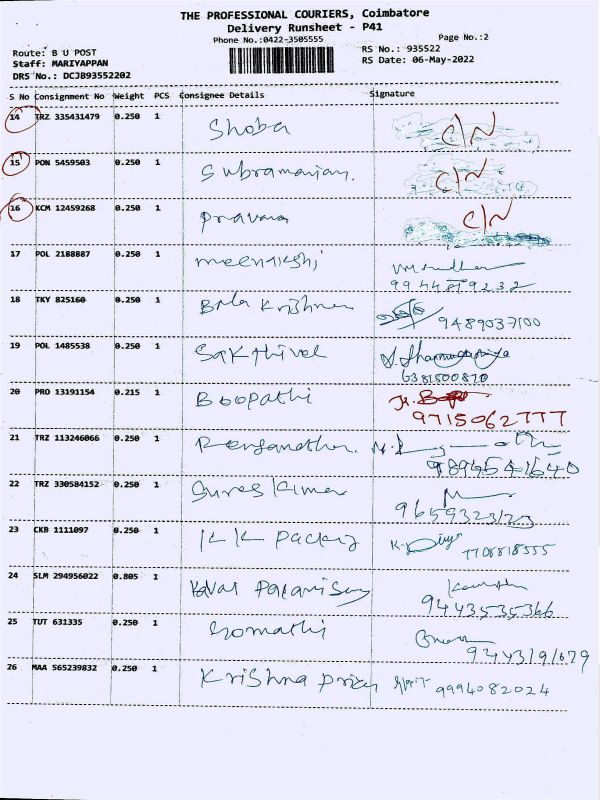 THE PROFESSIONAL COURIERS, Coimbatore
Delivery Runsheet - P41
Phone No.:0422-3505555
Page No.:2
Route: B U POST
RS No.: 935522
Staff: MARIYAPPAN
RS Date: 06-May-2022
DRS No.: DCJB93552202
S No Consignment No Weight PCS Consignee Details Signature
14 TRZ 335431479 0.250 1 Shoba C/N
15 PON 5459503 0.250 1 Subramaniam. C/N
16 KCM 12459268 0.250 1 Pravana C/N
17 POL 2188887 0.250 1 meenakshi
18 TKY 825160 0.250 1 Bala Krishnan 9489037100
19 POL 1485538 0.250 1 Sakthivel
6381500810
20 PRO 13191154 0.215 1 Boopathi
9715062777
21 TRZ 113246066 0.250 1
22 TRZ 330584152 0.250 1 Sures Kumar
9659323123
23 CKB 1111097 0.250 1 KK Packing K. Divya 7708818555
24 SLM 294956022 0.805 1
9443535366
25 TUT 631335 0.250 1 Gomathi
9443191679
26 MAA 565239832 0.250 1 Krishna priya 9994082024